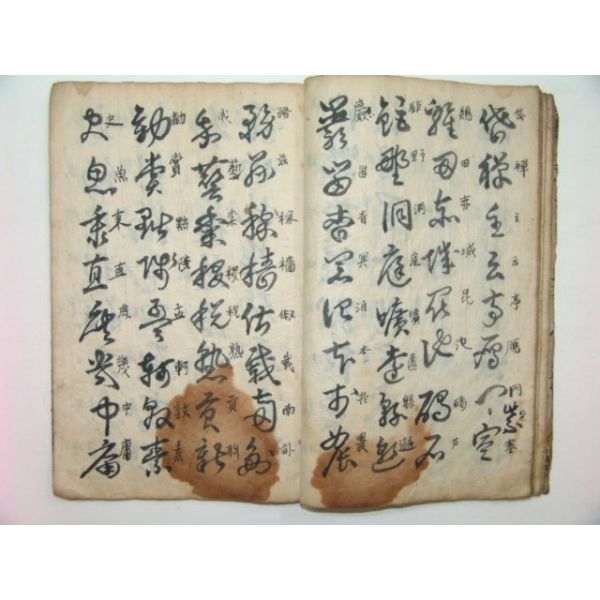 岱禪主云亭鴈門紫塞
鷄田赤城昆池碣石
鉅野洞庭曠遠緜邈
巖岫杳冥治本於農
務茲稼穡俶載南畝
我藝黍稷稅熟貢新
勸賞黜陟孟軻敦素
史魚秉直庶幾中庸